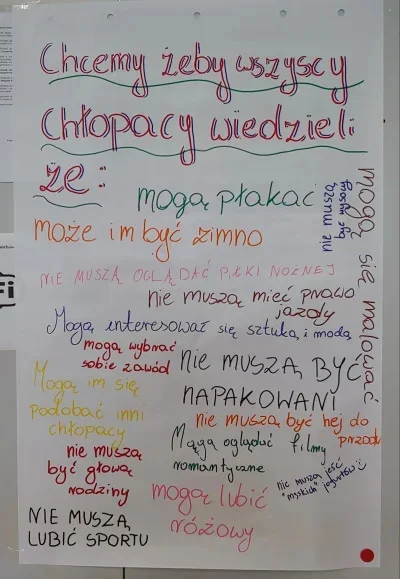 Chcemy żeby wszyscy
Chłopacy wiedzieli
że:
mogą płakać
nie muszą
być wysocy
mogą się malować
może im być zimno
NIE MUSZĄ OGLĄDAĆ PIŁKI NOŻNEJ
nie muszą mieć prawo
jazdy
Mogą interesować się sztuką i modą
mogą wybrać
sobie zawód
nie MUSZĄ BYĆ
NAPAKOWANI
Mogą im się
podobać inni
chłopacy
nie muszą być hej do
przodu
Mogą oglądać filmy
romantyczne
nie muszą
być głową
rodziny
nie muszą jeść
"męskich" jogurtów :)
mogą lubić
różowy
NIE MUSZĄ
LUBIĆ SPORTU
Fi